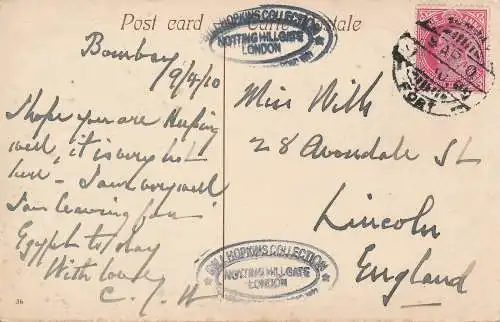 Post card Carte Postale
BILL HOPKINS COLLECTION
NOTTING HILL GATE
LONDON
ONE ANNA
FORT
Bombay
9/4/10
I hope you are keeping
well, it is very hot
here - I am very well
I am leaving for
Egypt to/day
With love
C. I. W
Miss Wilk
28 Avondale St
Lincoln
England
BILL HOPKINS COLLECTION
NOTTING HILL GATE
LONDON
36